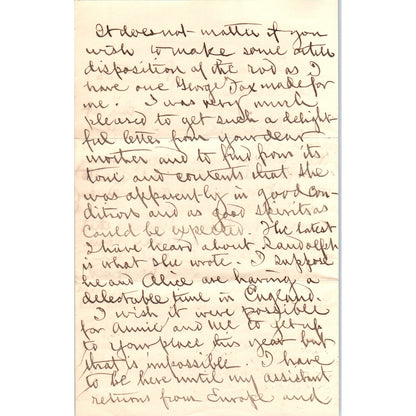 It does not matter if you
wish to make some other
disposition of the rod as I
have one George Fox made for
me. I was very much
pleased to get such a delight-
ful letter from your dear
mother and to find from its
tone and contents that she
was apparently in good con-
ditions and as good spirits as
could be expected. The latest
I have heard about Randolph
is what she wrote. I suppose
he and Alice are having a
delectable time in England.
I wish it were possible
for Annie and me to get up
to your place this year but
that is impossible. I have
to be here until my assistant
returns from Europe and